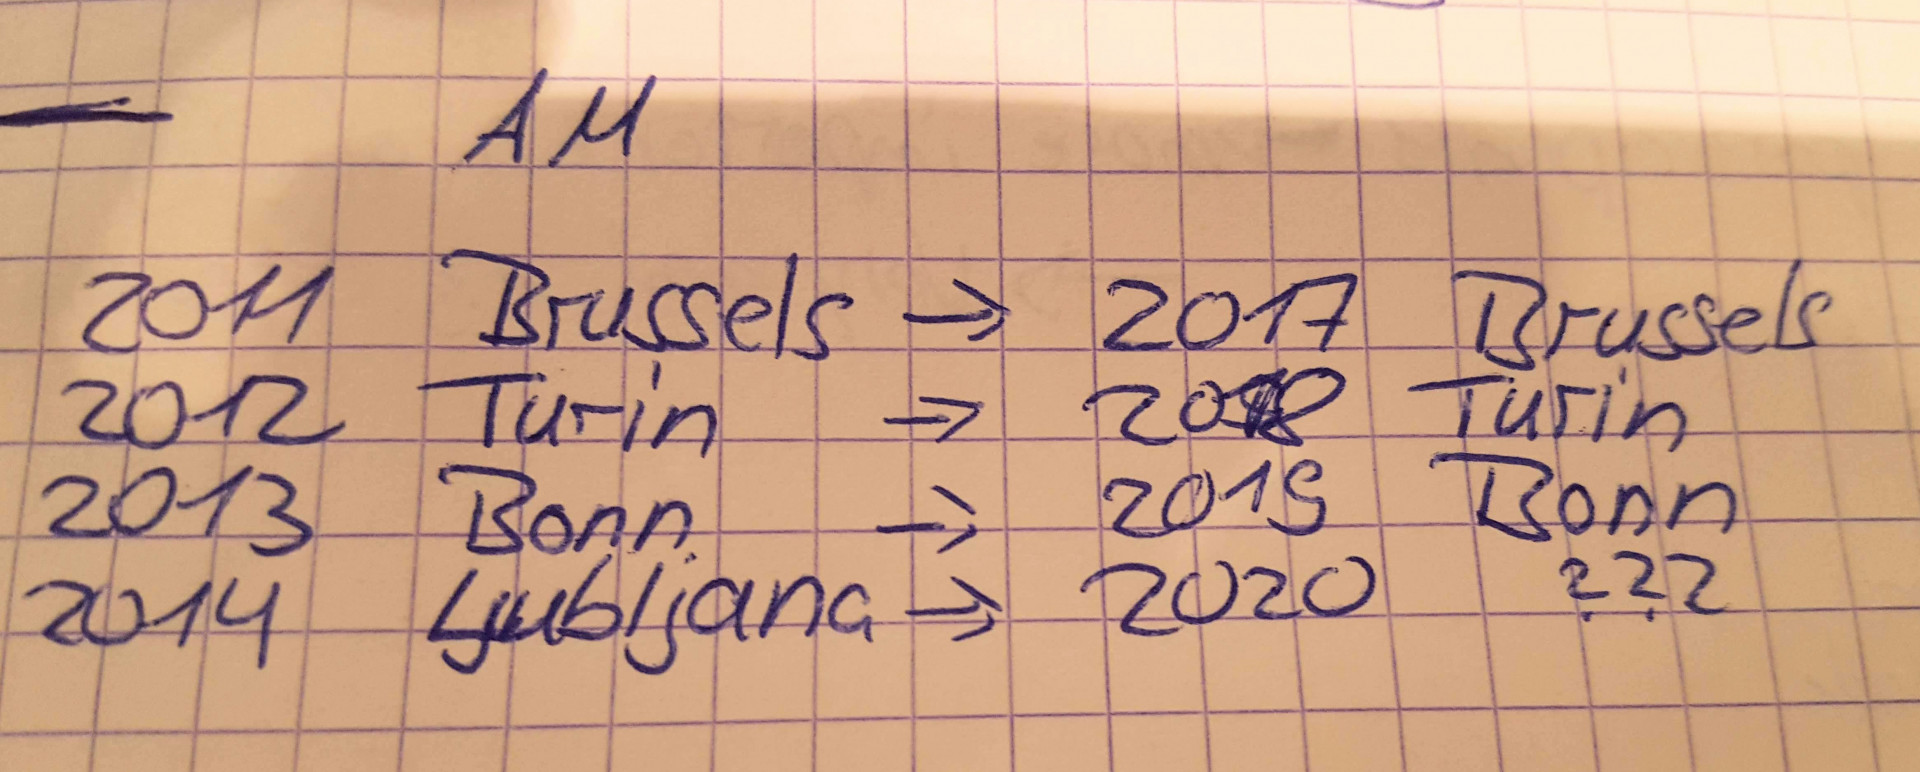 AM
2011 Brussels → 2017 Brussels
2012 Turin → 2018 Turin
2013 Bonn → 2019 Bonn
2014 Ljubljana → 2020 ???